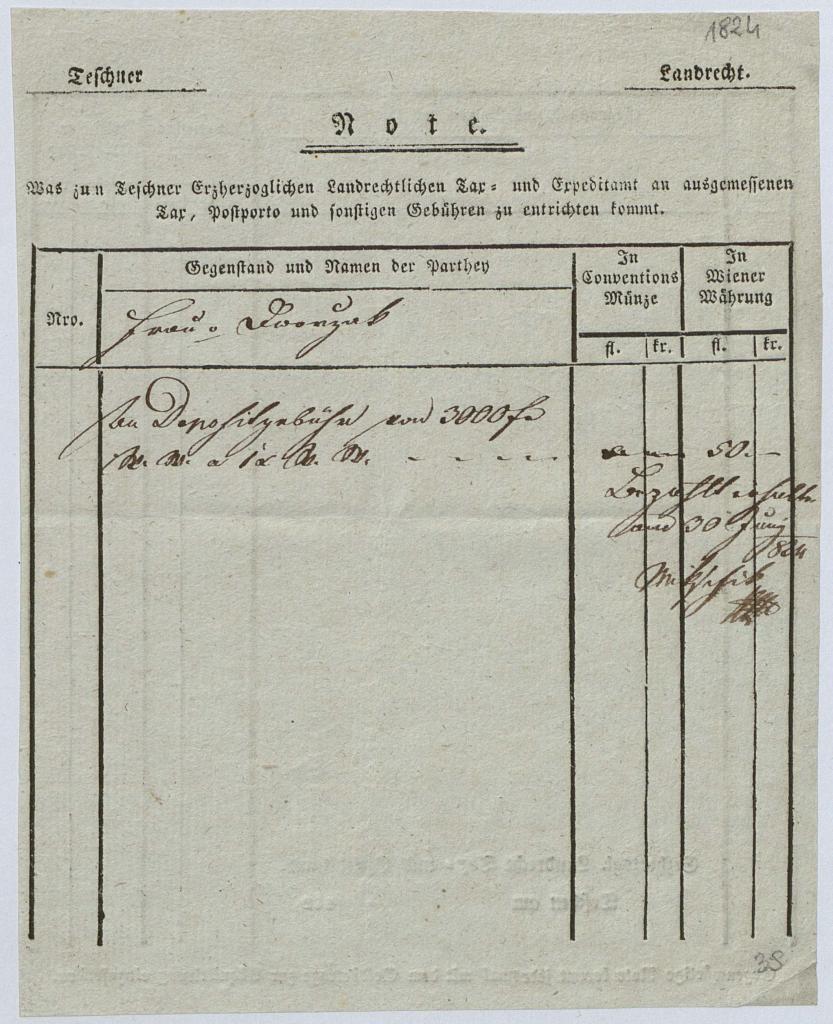 1824
Teschner Landrecht.
Note.
Was zun Teschner Erzherzoglichen Landrechtlichen Tax- und Expeditamt an ausgemessenen
Tax, Postporto und sonstigen Gebühren zu entrichten kommt.
Nro.
Gegenstand und Namen der Parthey
In Conventions Münze
In Wiener Währung
fl. kr. fl. kr.
Frau
An Depositgebühr von 3000 f
W. W. a 1 x W. W. - - - - 50.-
Bezahlt erhalten
am 30 Juny
1824
38